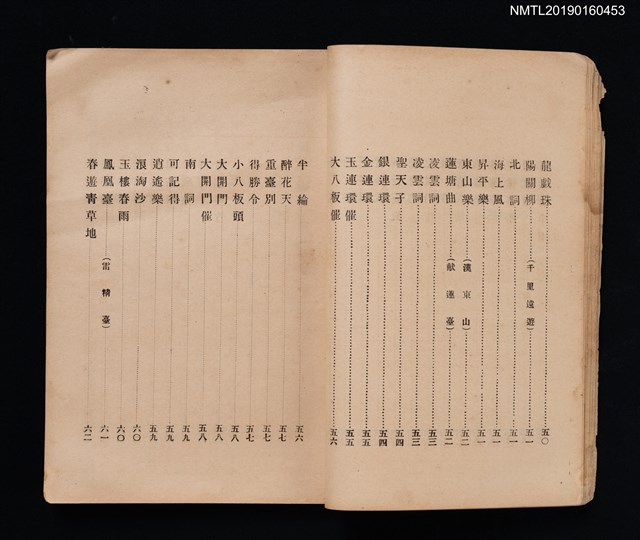 NMTL20190160453
龍戲珠 五〇
陽關柳 (千里遠遊) 五一
北詞 五一
海上風 五一
昇平樂 五一
東山樂 (漢東山) 五二
蓮塘曲 (献蓮臺) 五二
凌雲詞 五三
凌雲詞 五三
聖天子 五四
銀連環 五四
金連環 五五
玉連環催 五五
大八板催 五六
半綸 五六
醉花天 五七
重臺別 五七
得勝令 五七
小八板頭 五八
大開門 五八
大開門催 五八
南詞 五九
可記得 五九
逍遙樂 五九
浪淘沙 六〇
玉樓春雨 六〇
鳳凰臺 (雷精臺) 六一
春遊青草地 六二